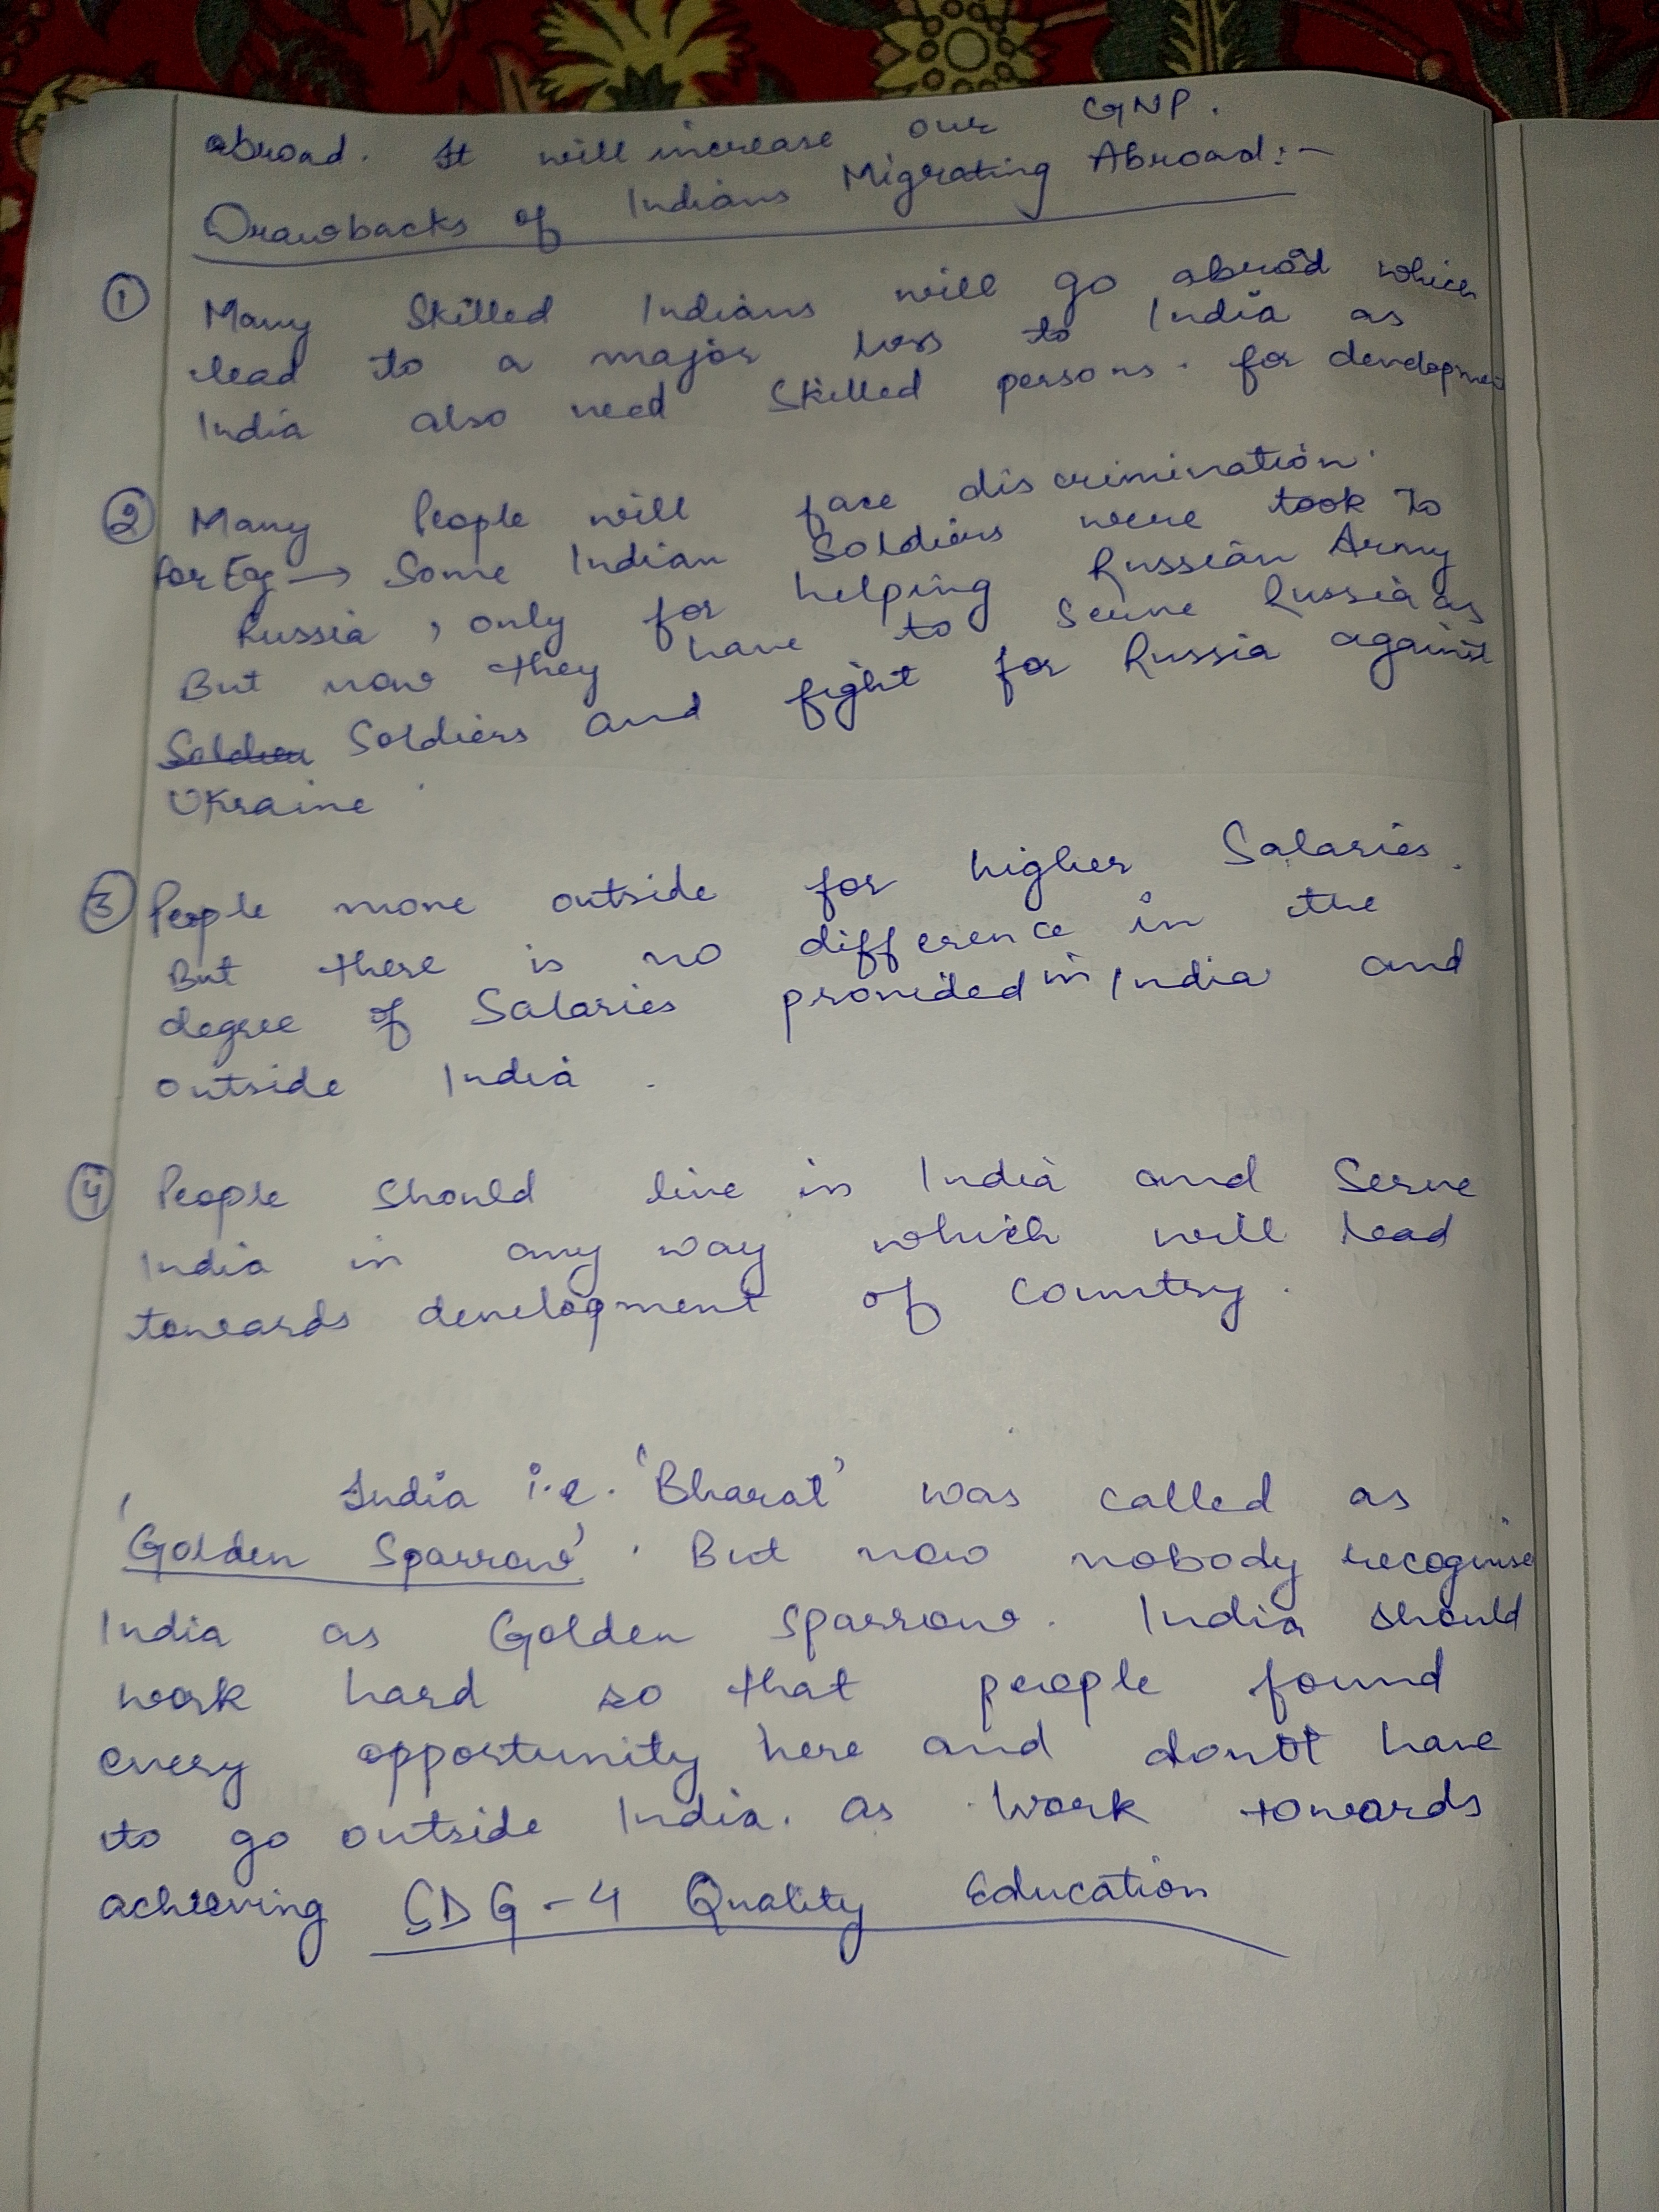 abroad. It will increase our GNP.
Drawbacks of Indians Migrating Abroad:-
① Many Skilled Indians will go abroad which
lead to a major loss to India as
India also need skilled persons. for development
② Many People will face discrimination.
For Eg → Some Indian Soldiers were took to
Russia, only for helping Russian Army
But now they have to serve Russia as
Soldiers and fight for Russia against
Ukraine.
③ People move outside for higher Salaries.
But there is no difference in the
degree of Salaries provided in India and
outside India.
④ People should live in India and Serve
India in any way which will lead
towards development of country.
India i.e. 'Bharat' was called as
'Golden Sparrow'. But now nobody recognise
India as Golden Sparrow. India should
work hard so that people found
every opportunity here and don't have
to go outside India. as work towards
achieving SDG-4 Quality Education